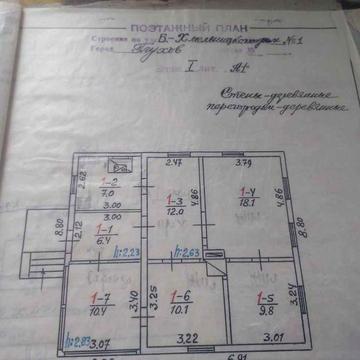 ПОЭТАЖНЫЙ ПЛАН
Строения на ул. Б-Хмельницкого №1
Город Глухов
I лит. А1
Стены-деревянные
перегородки-деревянные
2.47 3.79
2.62 1-2 7.0
3.00
1-3 12.0 4.86
1-4 18.1 4.86
8.80
3.00
2.12 1-1 6.4
h:2.23 h:2.63
8.80
1-7 10.4 3.40
3.25 1-6 10.1
1-5 9.8 3.24
h:2.23 3.07 3.22 3.01
6.91